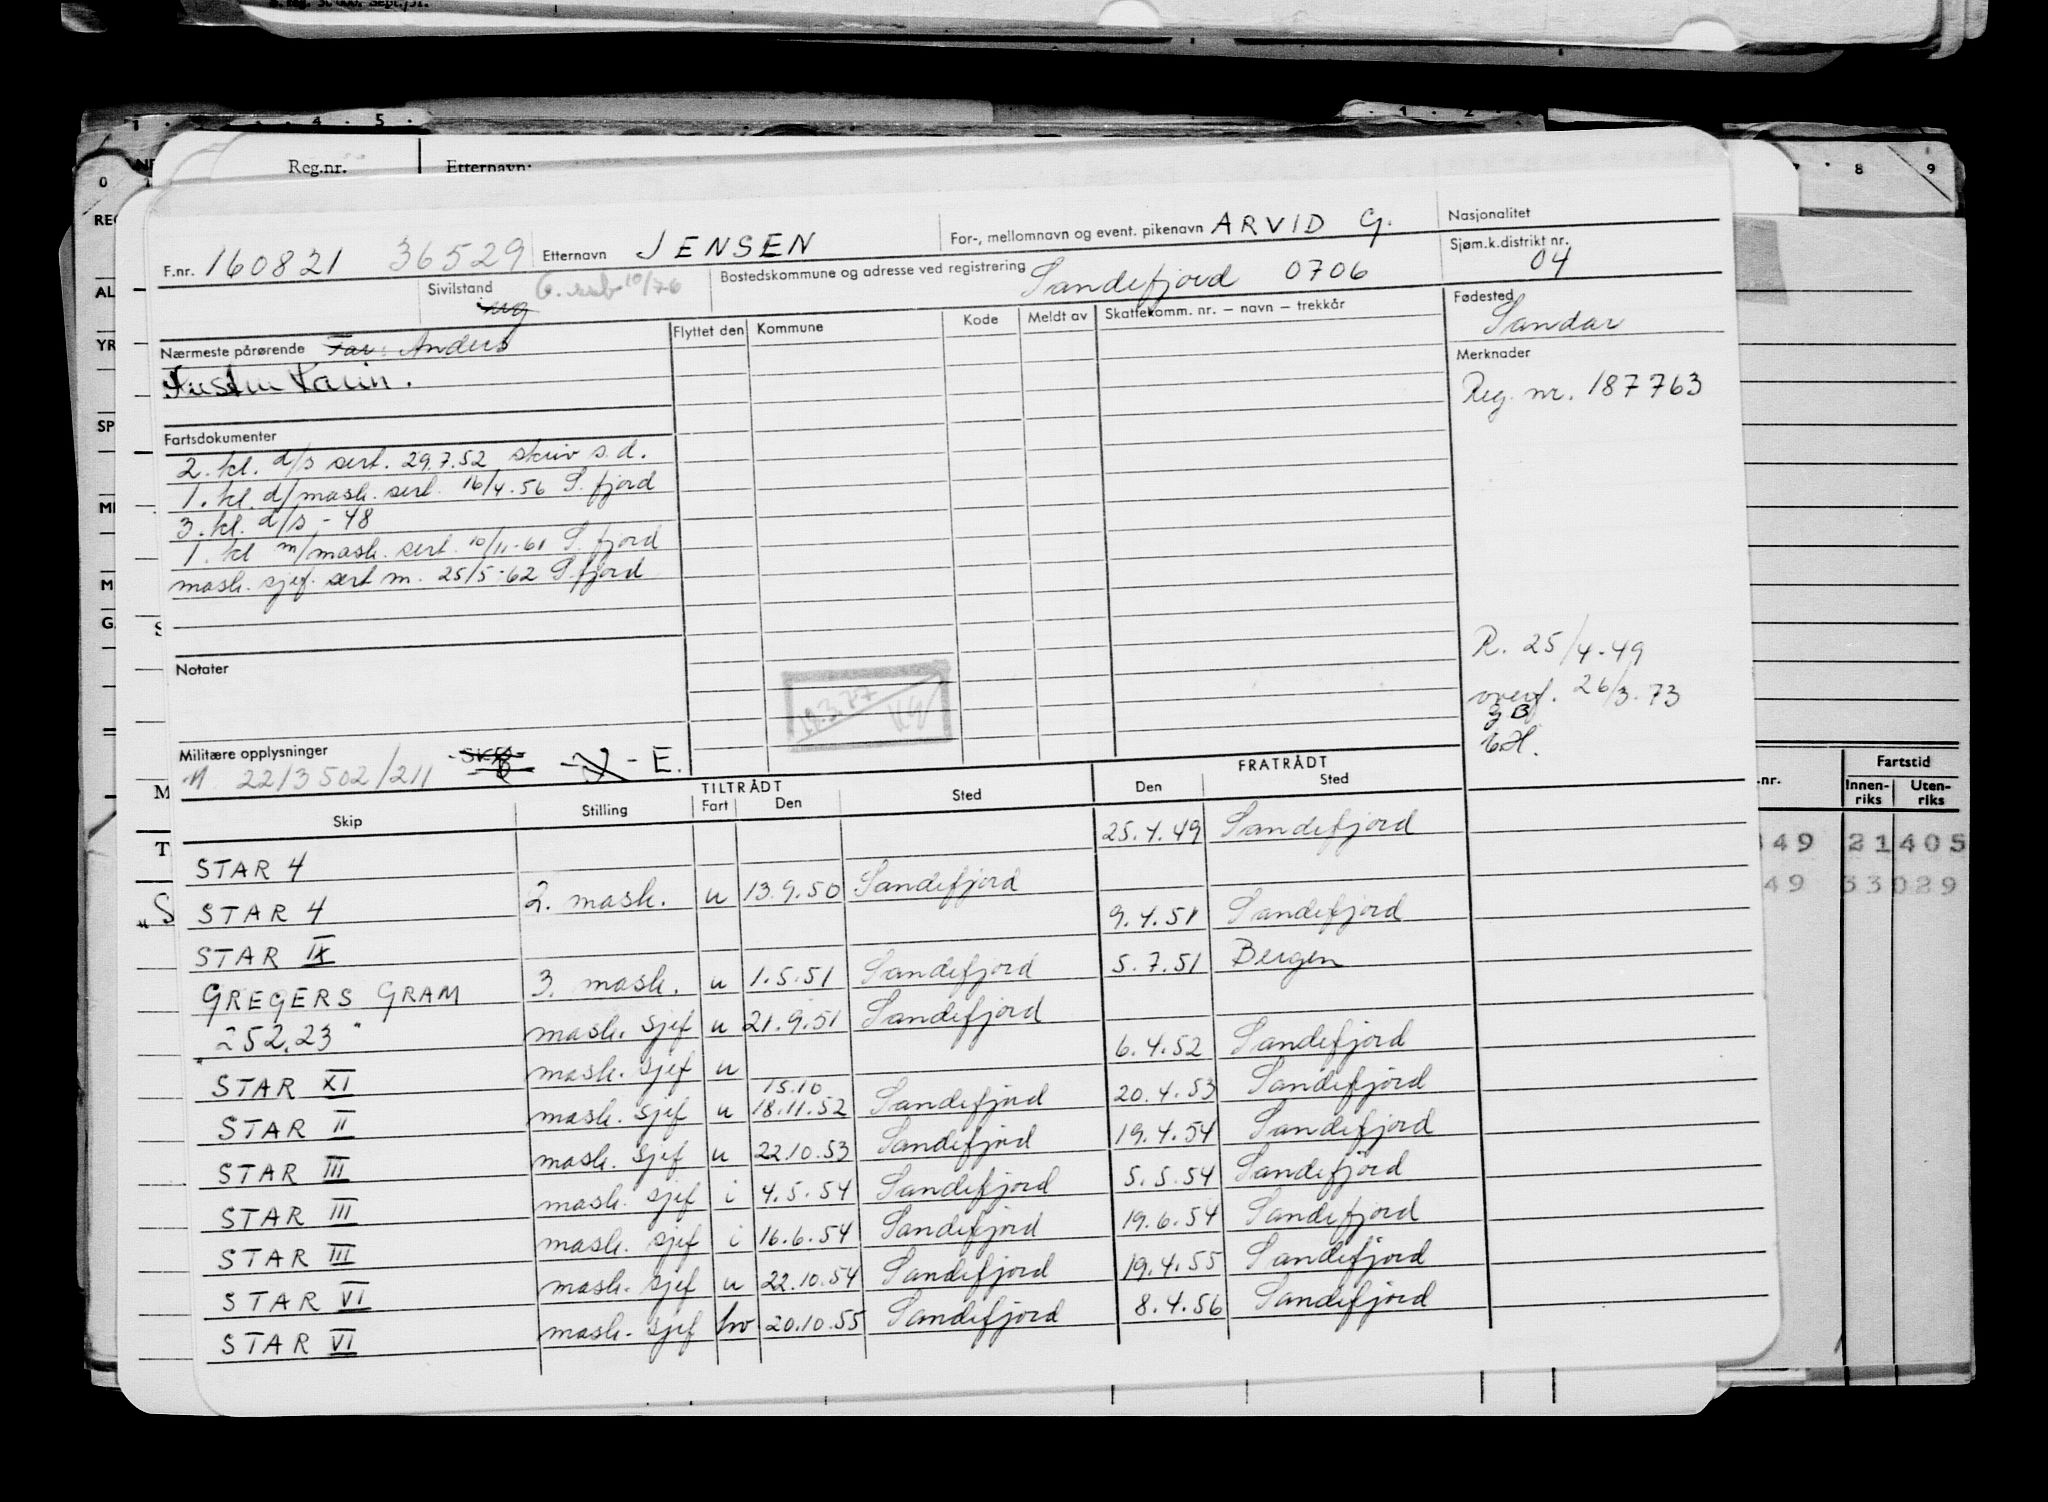 Reg.nr. Etternavn:
F.nr. 160821 36529 Etternavn JENSEN For-, mellomnavn og event. pikenavn ARVID G. Nasjonalitet
Sivilstand ug 10/76 Bostedskommune og adresse ved registrering Sandefjord 0706 Sjøm.k.distrikt nr. 04
Nærmeste pårørende Far: Anders Flyttet den Kommune Kode Meldt av Skattekomm. nr. – navn – trekkår Fødested Sandar
Hustru Karin. Merknader
Reg. nr. 187763
Fartsdokumenter
2. kl. d/s sert. 29.7.52 skriv s.d.
1. kl. d/mask. sert. 16/4-56 S.fjord
3. kl. d/s - 48
1. kl m/mask. sert. 10/11-61 S.fjord
mask. sjef. sert m. 25/5-62 S.fjord
R. 25/4-49
Notater
overf. 26/3.73
Militære opplysninger
2213502/211 - E.
TILTRÅDT FRATRÅDT
Skip Stilling Fart Den Sted Den Sted
STAR 4 25.4.49 Sandefjord
STAR 4 2. mask. u 13.9.50 Sandefjord
STAR IX 9.4.51 Sandefjord
GREGERS GRAM 3. mask. u 1.5.51 Sandefjord 5.7.51 Bergen
"252.23" mask. sjef u 21.9.51 Sandefjord
STAR XI mask. sjef u 6.4.52 Sandefjord
15.10
STAR II mask. sjef u 18.11.52 Sandefjord 20.4.53 Sandefjord
STAR III mask. sjef u 22.10.53 Sandefjord 19.4.54 Sandefjord
STAR III mask. sjef i 4.5.54 Sandefjord 5.5.54 Sandefjord
STAR III mask. sjef i 16.6.54 Sandefjord 19.6.54 Sandefjord
STAR VI mask. sjef u 22.10.54 Sandefjord 19.4.55 Sandefjord
STAR VI mask. sjef hv. 20.10.55 Sandefjord 8.4.56 Sandefjord
Fartstid
Innen-riks Uten-riks
49 21405
49 33029